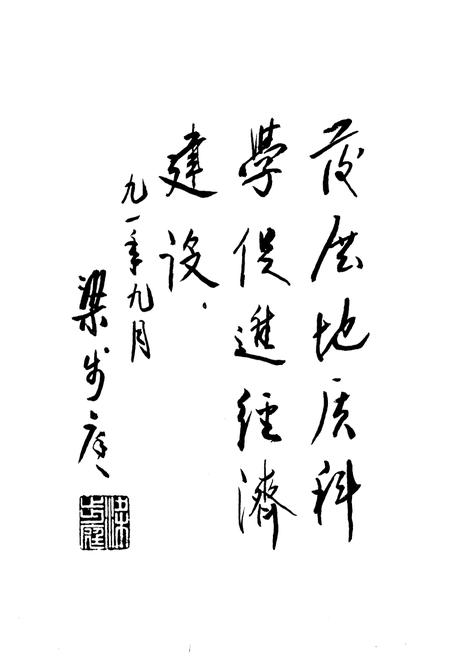 发展地质科
學促進經濟
建设.
九一年九月
梁步庭
梁步庭